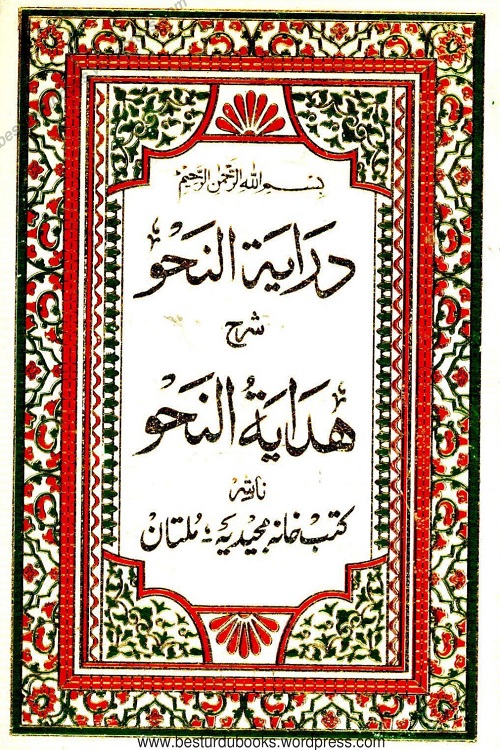 بسم الله الرحمن الرحيم
دراية النحو
شرح
هداية النحو
ناشر
كتب خانه مجيديه - ملتان
www.besturdubooks.wordpress.com